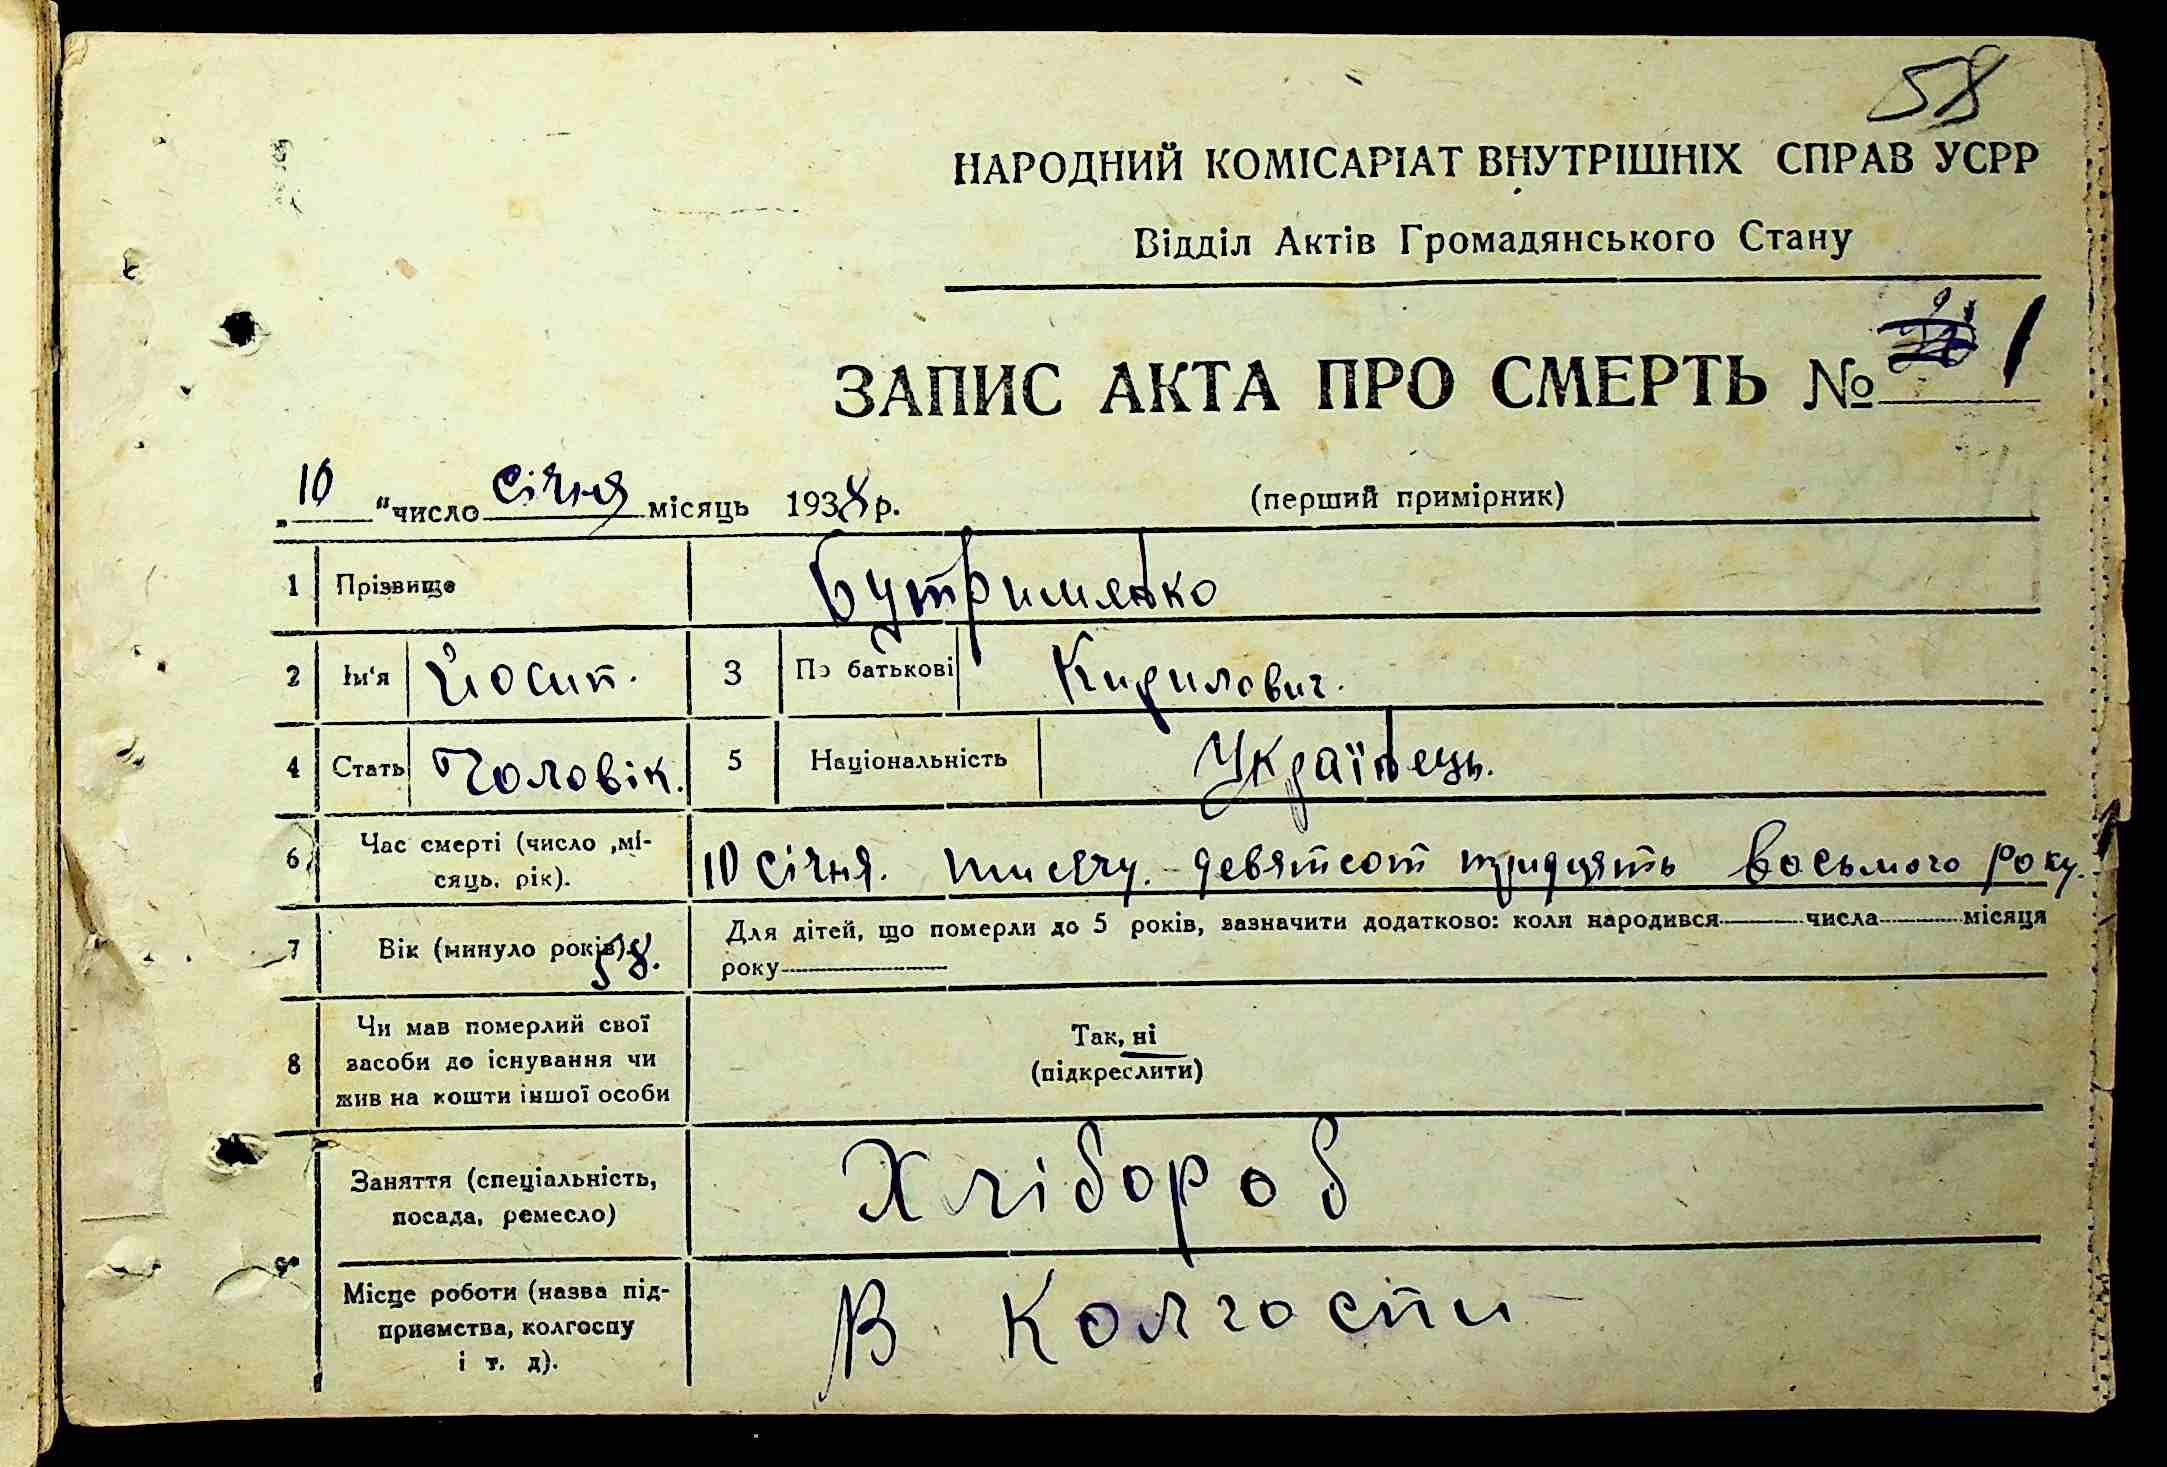 58
НАРОДНИЙ КОМІСАРІАТ ВНУТРІШНІХ СПРАВ УСРР
Відділ Актів Громадянського Стану
ЗАПИС АКТА ПРО СМЕРТЬ № 1
„10 "число січня місяць 1938 р. (перший примірник)
1 Прізвище Бутрименко
2 Ім'я Йосип. 3 По батькові Кирилович.
4 Стать Чоловік. 5 Національність Українець.
6 Час смерті (число ,мі-
сяць, рік). 10 січня. тисячу. девятсот тридцять восьмого року.
7 Вік (минуло років) 58. Для дітей, що померли до 5 років, зазначити додатково: коли народився числа місяця
року
8 Чи мав померлий свої
засоби до існування чи
жив на кошти іншої особи
Так, ні
(підкреслити)
Заняття (спеціальність,
посада, ремесло) Хлібороб
Місце роботи (назва під-
приємства, колгоспу
і т. д). В Колгоспи